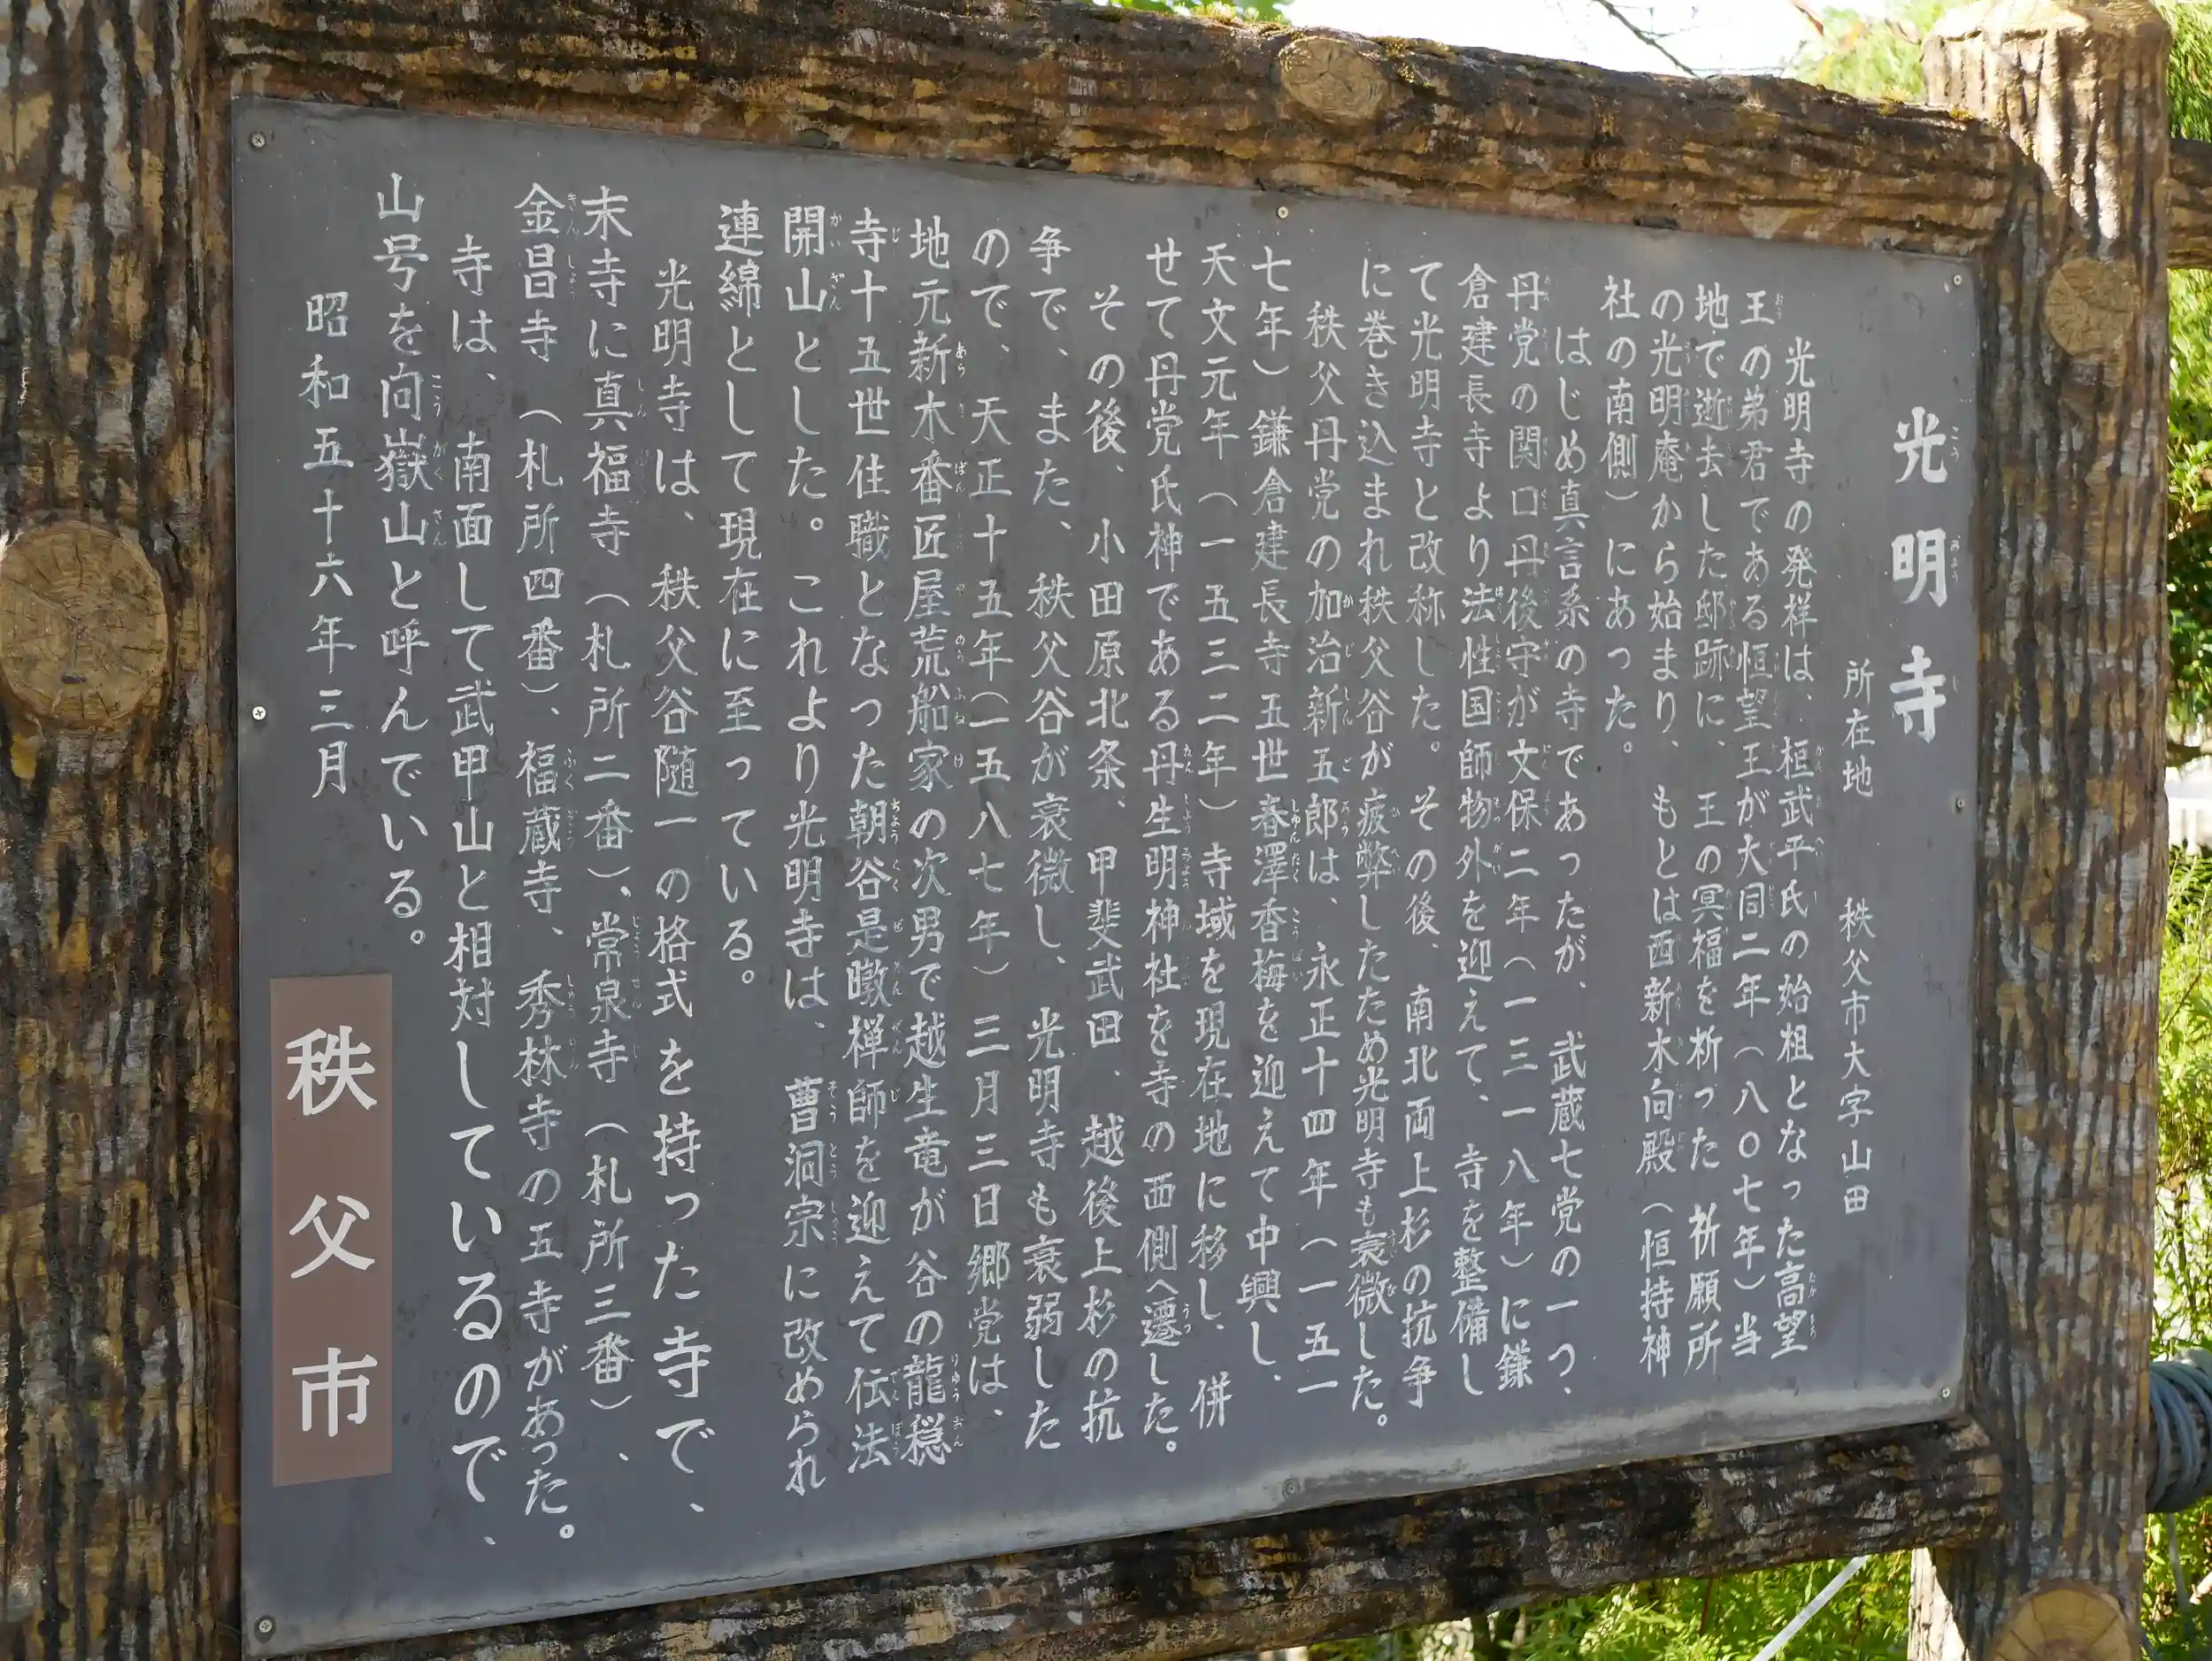 光明寺
所在地 秩父市大字山田
光明寺の発祥は、桓武平氏の始祖となった高望
王の弟君である恒望王が大同二年（八〇七年）当
地で逝去した邸跡に、王の冥福を祈った 祈願所
の光明庵から始まり、もとは西新木向殿（恒持神
社の南側）にあった。
はじめ真言系の寺であったが、武蔵七党の一つ、
丹党の関口丹後守が文保二年（一三一八年）に鎌
倉建長寺より法性国師物外を迎えて、寺を整備し
て光明寺と改称した。その後、南北両上杉の抗争
に巻き込まれ秩父谷が疲弊したため光明寺も衰微した。
秩父丹党の加治新五郎は、永正十四年（一五一
七年）鎌倉建長寺五世春澤香梅を迎えて中興し、
天文元年（一五三二年）寺域を現在地に移し、併
せて丹党氏神である丹生明神社を寺の西側へ遷した。
その後、小田原北条、甲斐武田、越後上杉の抗
争で、また、秩父谷が衰微し、光明寺も衰弱した
ので、天正十五年（一五八七年）三月三日郷党は、
地元新木番匠屋荒船家の次男で越生竜が谷の龍穏
寺十五世住職となった朝谷是暾禅師を迎えて伝法
開山とした。これより光明寺は、曹洞宗に改められ
連綿として現在に至っている。
光明寺は、秩父谷随一の格式を持った寺で、
末寺に真福寺（札所二番）、常泉寺（札所三番）、
金昌寺（札所四番）、福蔵寺、秀林寺の五寺があった。
寺は、南面して武甲山と相対しているので、
山号を向嶽山と呼んでいる。
昭和五十六年三月
秩父市